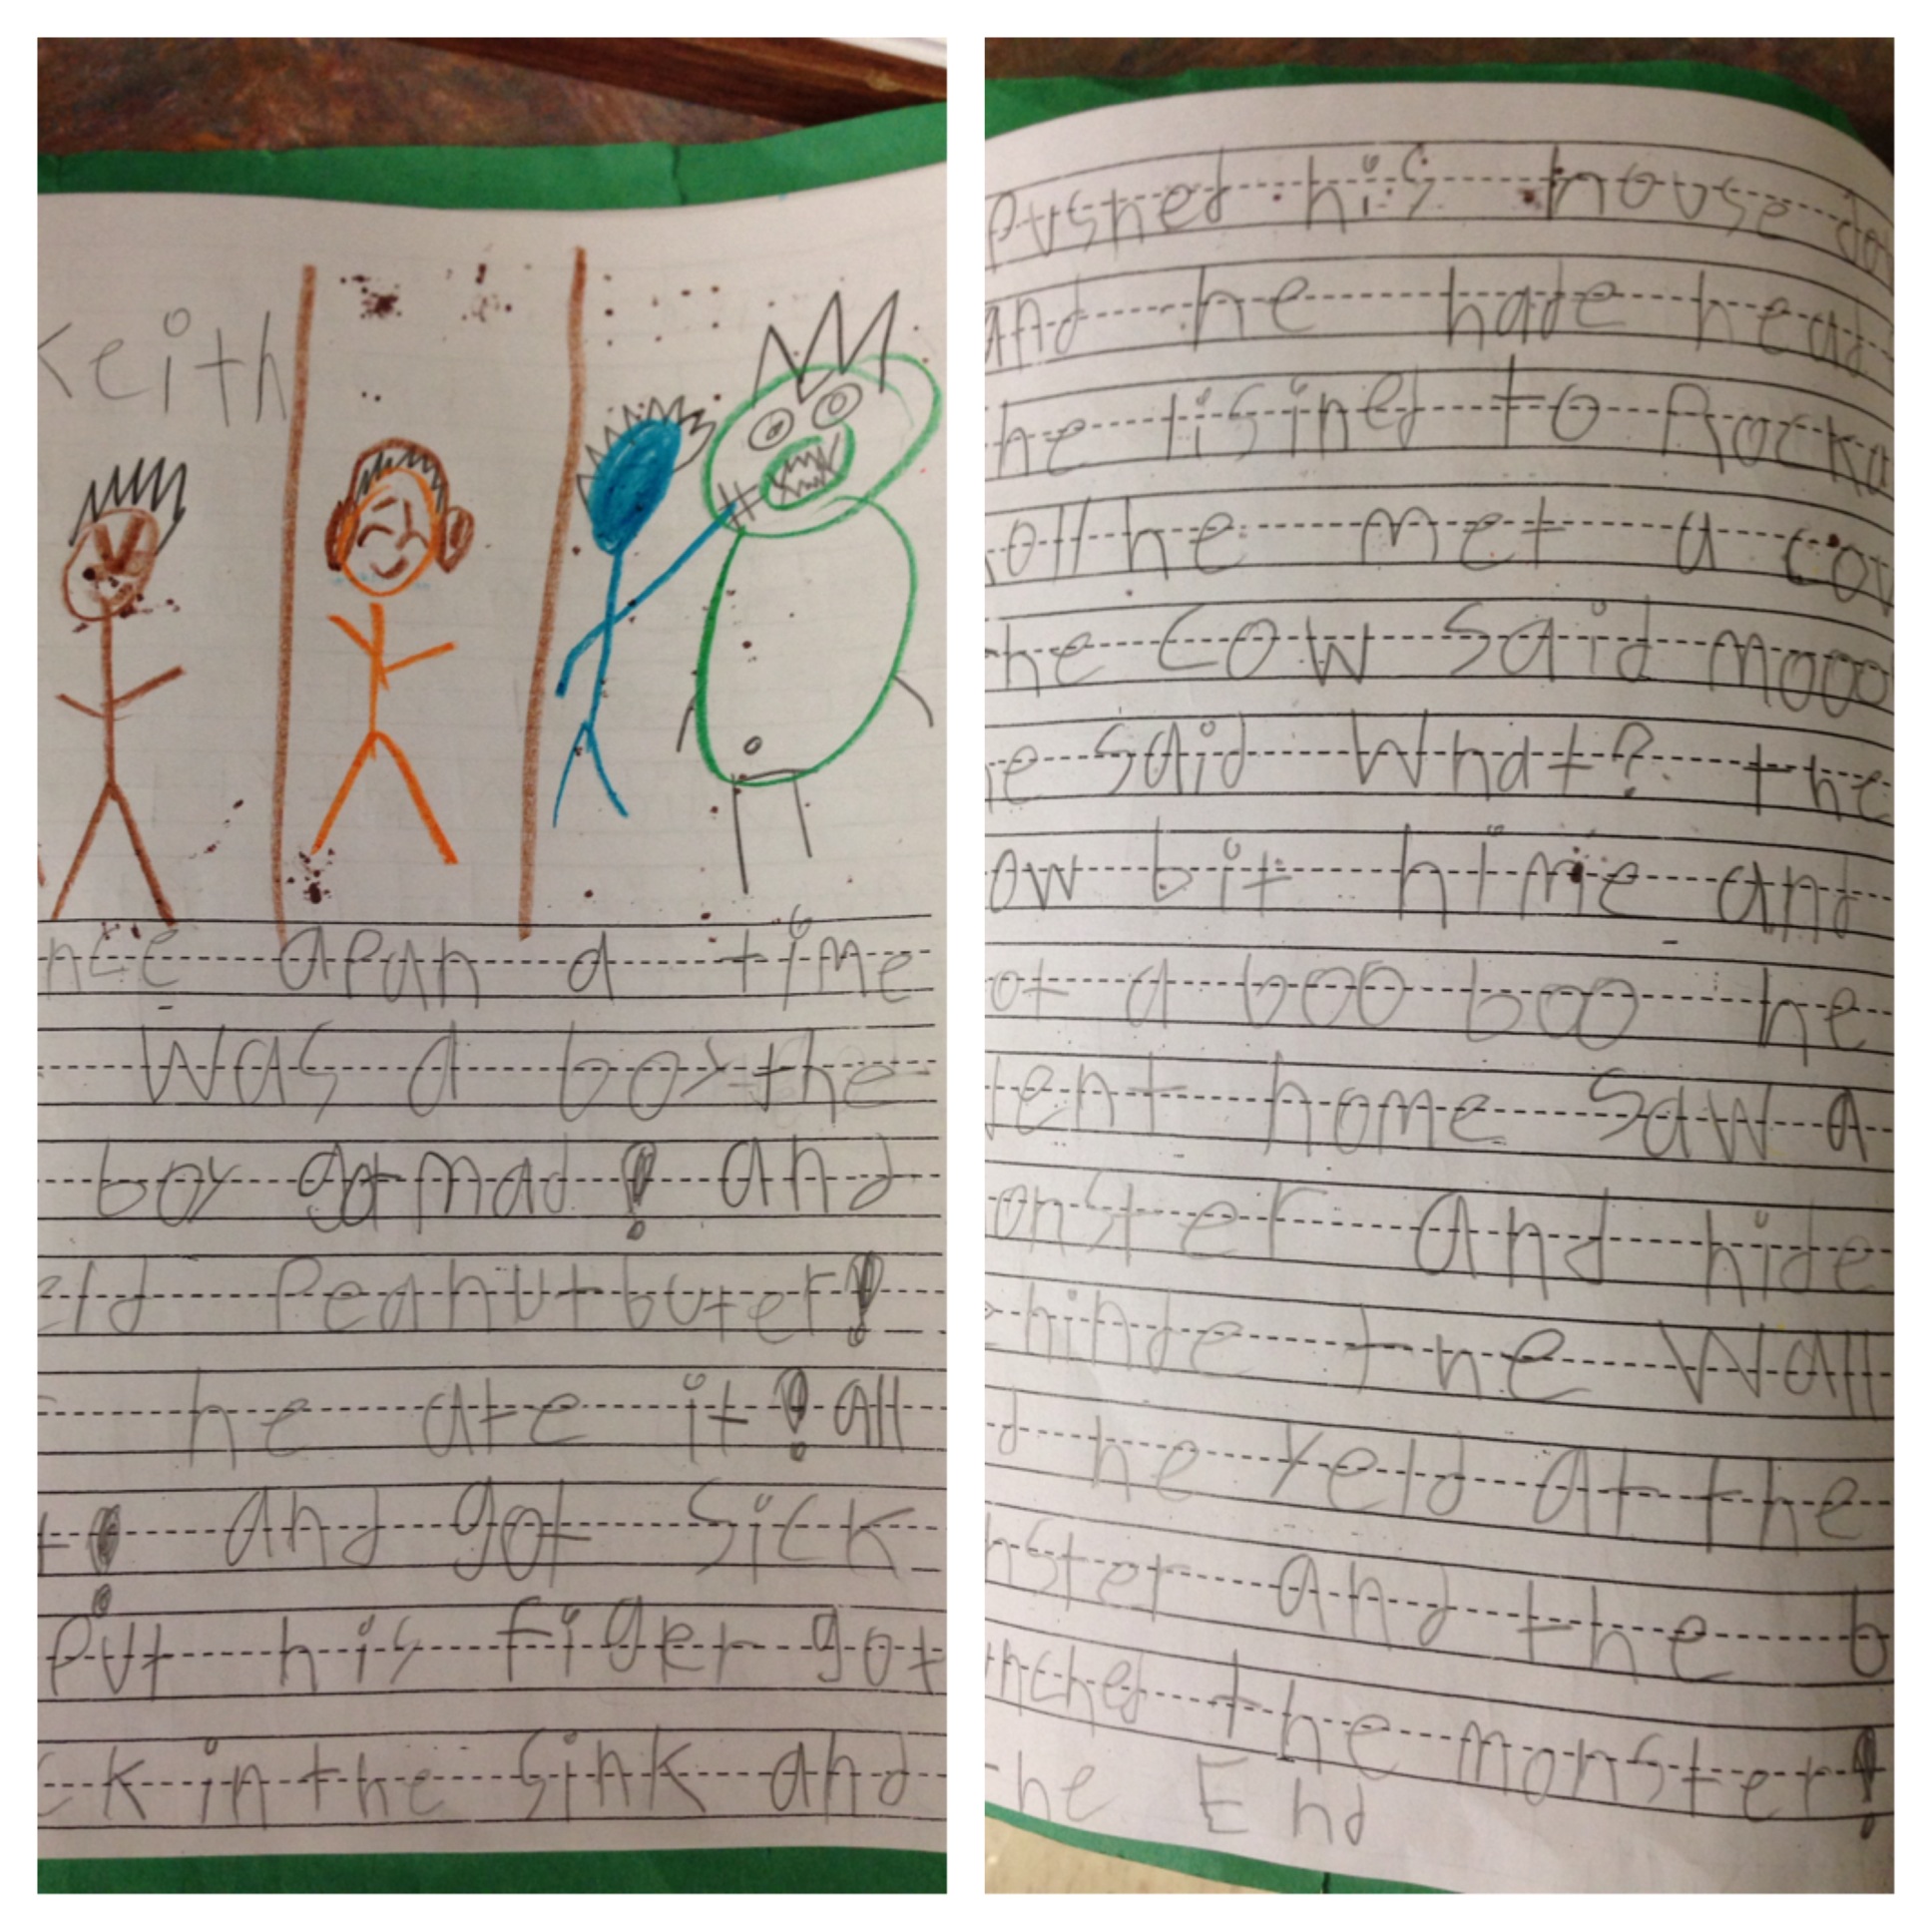 Keith
nce apan a time
was a boy the
boy got mad! and
eld Peanutbuter!
he ate it! all
t! and got sick
Put his figer got
ck in the sink and
Pushed his house do
and he hade head
he lisined to Rock a
oll he met a cow
he cow said mooo
e said What? the
ow bit hime and
ot a boo boo he
ent home saw a
onster and hide
hinde the wall
d he yeld at the
nster and the b
nched the monster!
he End